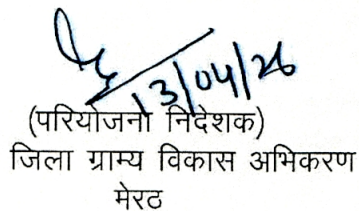 13/04/26
(परियोजना निदेशक)
जिला ग्राम्य विकास अभिकरण
मेरठ